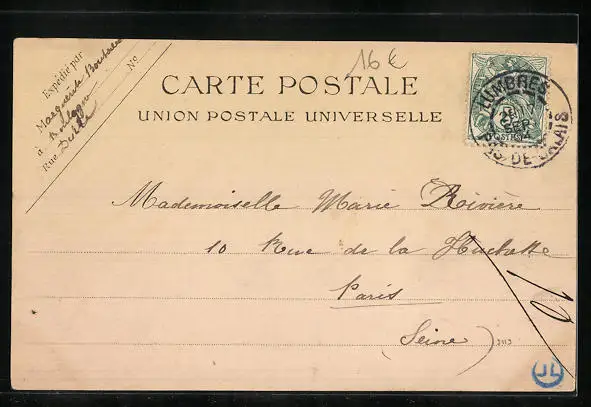 Expédié par
Marguerite
à Boulogne
Rue
No
16 €
CARTE POSTALE
UNION POSTALE UNIVERSELLE
LUMBRES
PAS-DE-CALAIS
Mademoiselle Marie Rivière
10 Rue de la Huchette
Paris
(Seine)
10